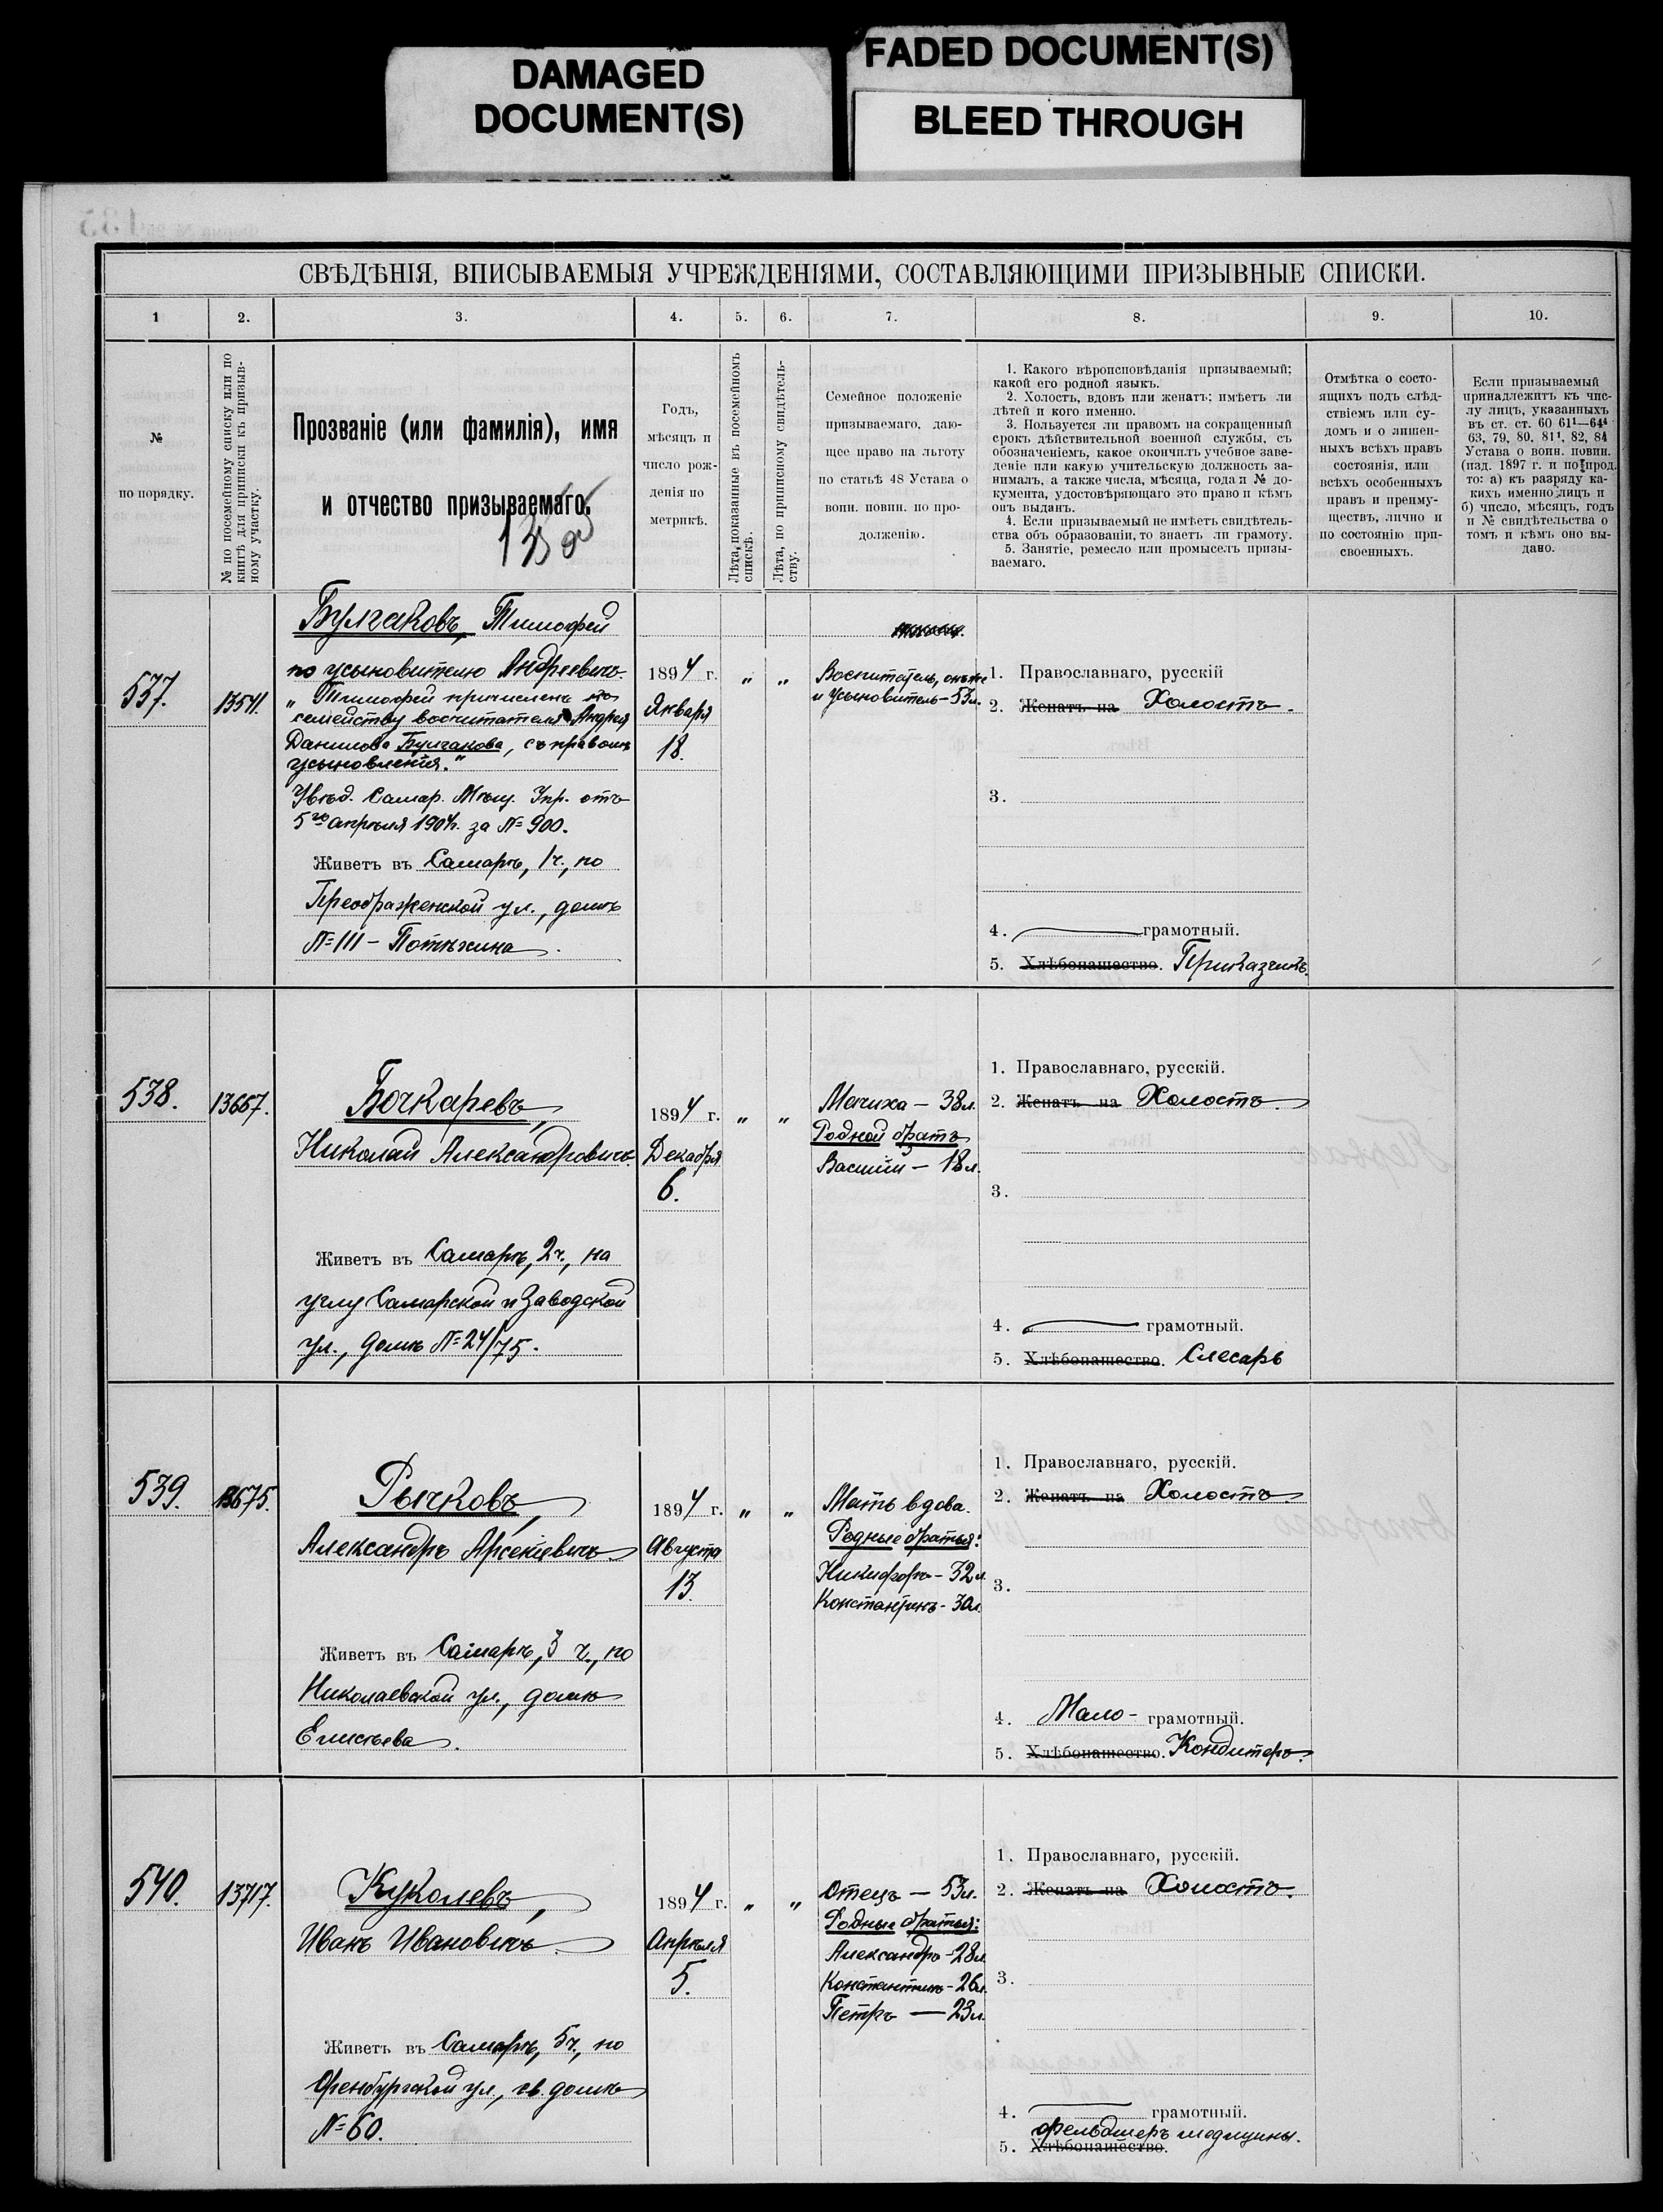 DAMAGED
DOCUMENT(S)
FADED DOCUMENT(S)
BLEED THROUGH
СВѢДѢНІЯ, ВПИСЫВАЕМЫЯ УЧРЕЖДЕНІЯМИ, СОСТАВЛЯЮЩИМИ ПРИЗЫВНЫЕ СПИСКИ.
1 2. 3. 4. 5. 6. 7. 8. 9. 10.
№
по порядку.
№ по посемейному списку или по
книгѣ для приписки къ призыв-
ному участку.
Прозваніе (или фамилія), имя
и отчество призываемаго.
Годъ,
мѣсяцъ и
число рож-
денія по
метрикѣ.
Лѣта, показанные въ посемейномъ
спискѣ.
Лѣта, по приписному свидѣтель-
ству.
Семейное положеніе
призываемаго, даю-
щее право на льготу
по статьѣ 48 Устава о
воин. повин. по про-
долженію.
1. Какого вѣроисповѣданія призываемый;
какой его родной языкъ.
2. Холостъ, вдовъ или женатъ; имѣетъ ли
дѣтей и кого именно.
3. Пользуется ли правомъ на сокращенный
срокъ дѣйствительной военной службы, съ
обозначеніемъ, какое окончилъ учебное заве-
деніе или какую учительскую должность за-
нималъ, а также числа, мѣсяца, года и № до-
кумента, удостовѣряющаго это право и кѣмъ
онъ выданъ.
4. Если призываемый не имѣетъ свидѣтель-
ства объ образованіи, то знаетъ ли грамоту.
5. Занятіе, ремесло или промыселъ призы-
ваемаго.
Отмѣтка о состо-
ящихъ подъ слѣд-
ствіемъ или су-
домъ и о лишен-
ныхъ всѣхъ правъ
состоянія, или
всѣхъ особенныхъ
правъ и преиму-
ществъ, лично и
по состоянію при-
своенныхъ.
Если призываемый
принадлежитъ къ чис-
лу лицъ, указанныхъ
въ ст. ст. 60 61¹—64⁴
63, 79, 80, 81¹, 82, 84
Устава о воин. повин.
(изд. 1897 г. и по прод.
то: а) къ разряду ка-
кихъ именно лицъ и
б) число, мѣсяцъ, годъ
и № свидѣтельства о
томъ и кѣмъ оно вы-
дано.
537.
13541.
Булгаковъ, Тимофей
по усыновителю Андреевичъ
„Тимофей причисленъ къ
семейству воспитателя Андрея
Данилова Булгакова, съ правомъ
усыновленія."
Увѣд. Самар. Мѣщ. Упр. отъ
5го апрѣля 1904г. за № 900.
Живетъ въ Самарѣ, 1ч., по
Преображенской ул., домъ
№ 111 – Потѣхина.
1894 г.
Января
18.
„ „
Воспитатель, онъ же
и усыновитель – 53 л.
1. Православнаго, русскій
2. Женатъ на Холостъ.
3.
4. грамотный.
5. Хлѣбопашество. Приказчикъ.
538.
13667.
Бочкаревъ,
Николай Александровичъ.
Живетъ въ Самарѣ, 2ч., на
углу Самарской и Заводской
ул., домъ № 24/75.
1894 г.
Декабря
6.
„ „
Мачиха – 38 л.
Родной братъ
Василій – 18 л.
1. Православнаго, русскій.
2. Женатъ на Холостъ.
3.
4. грамотный.
5. Хлѣбопашество. Слесарь
539.
13675.
Рычковъ,
Александръ Арсеніевичъ
Живетъ въ Самарѣ, 3 ч., по
Николаевской ул., домъ
Елисѣева.
1894 г.
Августа
13.
„ „
Мать вдова.
Родные братья:
Никифоръ – 32 л.
Константинъ – 30 л.
1. Православнаго, русскій.
2. Женатъ на Холостъ
3.
4. Мало- грамотный.
5. Хлѣбопашество. Кондитеръ.
540.
13717.
Куколевъ,
Иванъ Ивановичъ
Живетъ въ Самарѣ, 5ч., по
Оренбургской ул., св. домъ
№ 60.
1894 г.
Апрѣля
5.
„ „
Отецъ – 53 л.
Родные братья:
Александръ – 28 л.
Константинъ – 26 л.
Петръ — 23 л.
1. Православнаго, русскій.
2. Женатъ на Холостъ.
3.
4. грамотный.
фельдшеръ медицины.
5. Хлѣбопашество.